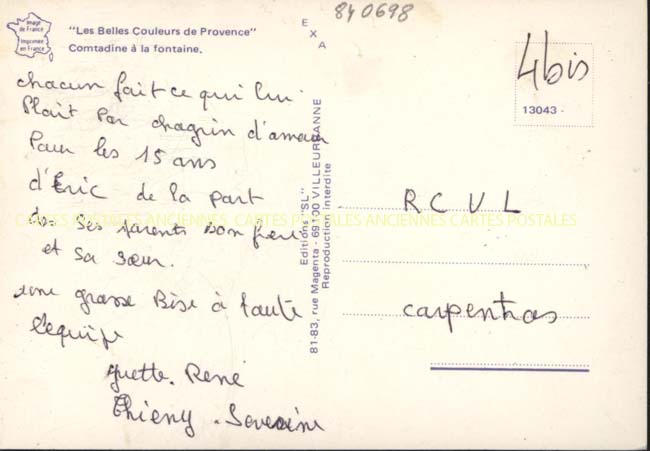 Image
de France
Imprimée
en France
"Les Belles Couleurs de Provence"
Comtadine à la fontaine.
E X A
840698
4bis
13043 -
chacun fait ce qui lui
Plait Par chagrin d'amour
Pour les 15 ans
d'Eric de la part
de Ses parents Son frere
et Sa Sœur.
une grosse Bise à toute
l'equipe
Yvette. René
Thierry. Severine
CARTES POSTALES ANCIENNES CARTES POSTALES ANCIENNES CARTES POSTALES
Editions "SL"
81-83, rue Magenta - 69100 VILLEURBANNE
Reproduction interdite
R C V L
carpentras